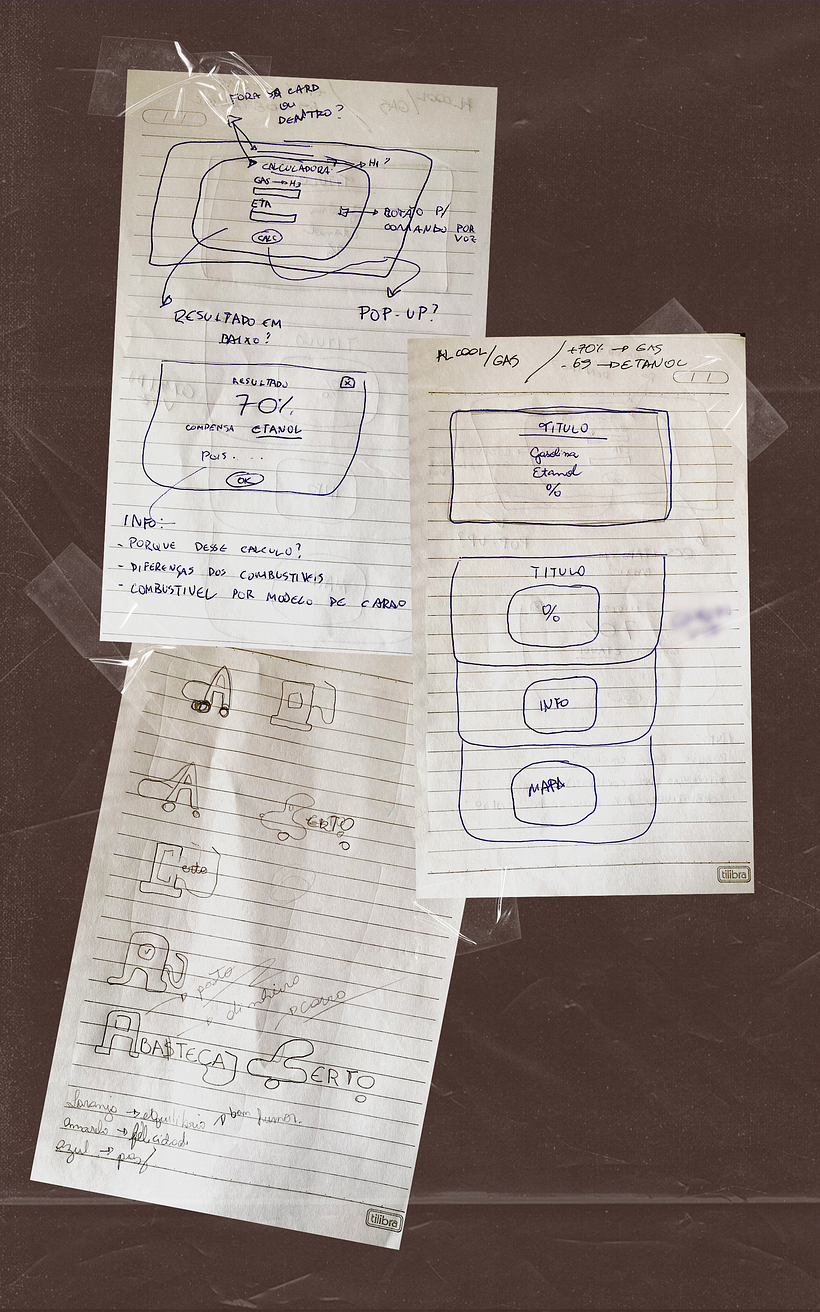 FORA DA CARD
OU
DENTRO?
CALCULADORA
H1?
GAS → H3
ETA
CALC
BOTÃO P/
COMANDO POR
VOZ
RESULTADO EM
BAIXO?
POP-UP?
RESULTADO
X
70%
COMPENSA ETANOL
POIS....
OK
INFO:
- PORQUE DESSE CALCULO?
- DIFERENÇAS DOS COMBUSTIVEIS
- COMBUSTIVEL POR MODELO DE CARRO
ALCOOL/GAS
+70% → GAS
- 69 → ETANOL
TITULO
Gasolina
Etanol
%
TITULO
%
INFO
MAPA
tilibra
A
A
CERTO
Certo
A
→ posto
→ dinheiro
→ carro
ABA$TEÇA CERTO
Laranja → equilibrio → bom humor.
amarelo → felicidade
azul → paz
tilibra